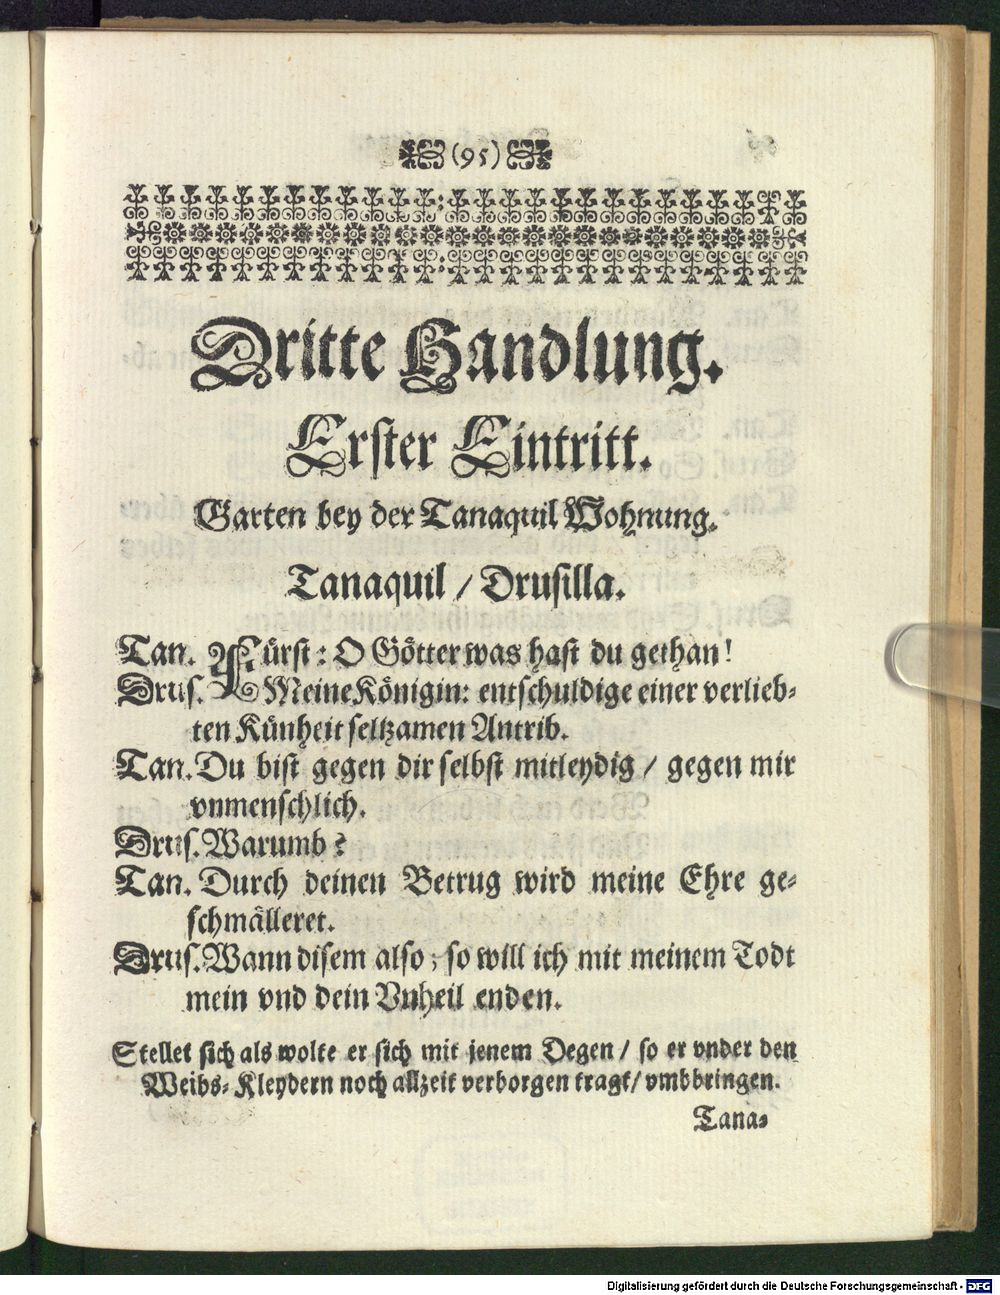 (95)
Dritte Handlung.
Erster Eintritt.
Garten bey der Tanaquil Wohnung.
Tanaquil / Drusilla.
Tan. Fürst: O Götter was hast du gethan!
Drus. Meine Königin: entschuldige einer verlieb-
ten Künheit seltzamen Antrib.
Tan. Du bist gegen dir selbst mitleydig / gegen mir
vnmenschlich.
Drus. Warumb?
Tan. Durch deinen Betrug wird meine Ehre ge-
schmälleret.
Drus. Wann disem also, so will ich mit meinem Todt
mein vnd dein Vnheil enden.
Stellet sich als wolte er sich mit jenem Degen / so er vnder den
Weibs-Kleydern noch allzeit verborgen tragt / vmbbringen.
Tana-
Digitalisierung gefördert durch die Deutsche Forschungsgemeinschaft - DFG